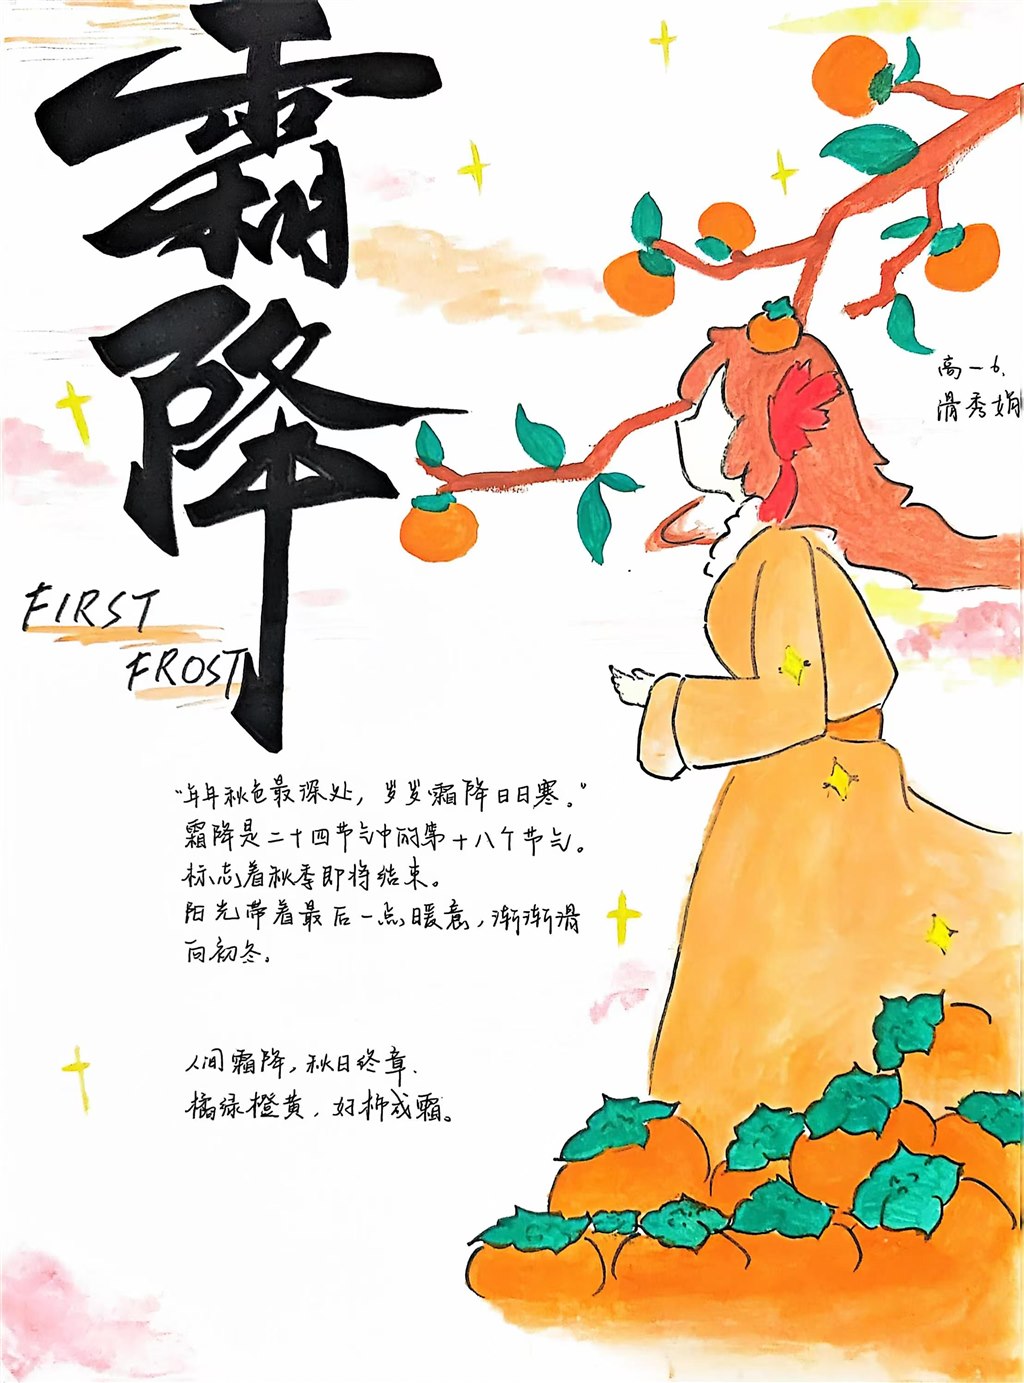 霜降
FIRST
FROST
高一6.
滑秀娟
"年年秋色最深处，岁岁霜降日日寒。"
霜降是二十四节气中的第十八个节气。
标志着秋季即将结束。
阳光带着最后一点暖意，渐渐滑
向初冬。
人间霜降，秋日终章.
橘绿橙黄，好柿成霜。